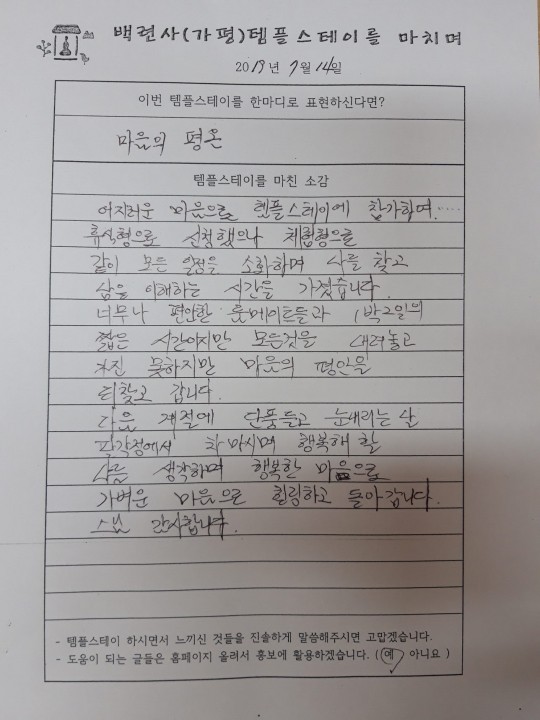 백련사(가평)템플스테이를 마치며
2019년 7월 14일
이번 템플스테이를 한마디로 표현하신다면?
마음의 평온
템플스테이를 마친 소감
어지러운 마음으로 템플스테이에 참가하며.....
휴식형으로 신청했으나 체험형으로
같이 모든 일정을 소화하며 나를 찾고
삶을 이해하는 시간을 가졌습니다.
너무나 편안한 룸메이트들과 1박2일의
짧은 시간이지만 모든것을 내려놓고
가진 못하지만 마음의 평안을
되찾고 갑니다.
다음 계절에 단풍들고 눈내리는 날
팔각정에서 차 마시며 행복해 할
나를 생각하며 행복한 마음으로
가벼운 마음으로 힐링하고 돌아갑니다.
스님 감사합니다.
- 템플스테이 하시면서 느끼신 것들을 진솔하게 말씀해주시면 고맙겠습니다.
- 도움이 되는 글들은 홈페이지 올려서 홍보에 활용하겠습니다. ( 예 아니요 )